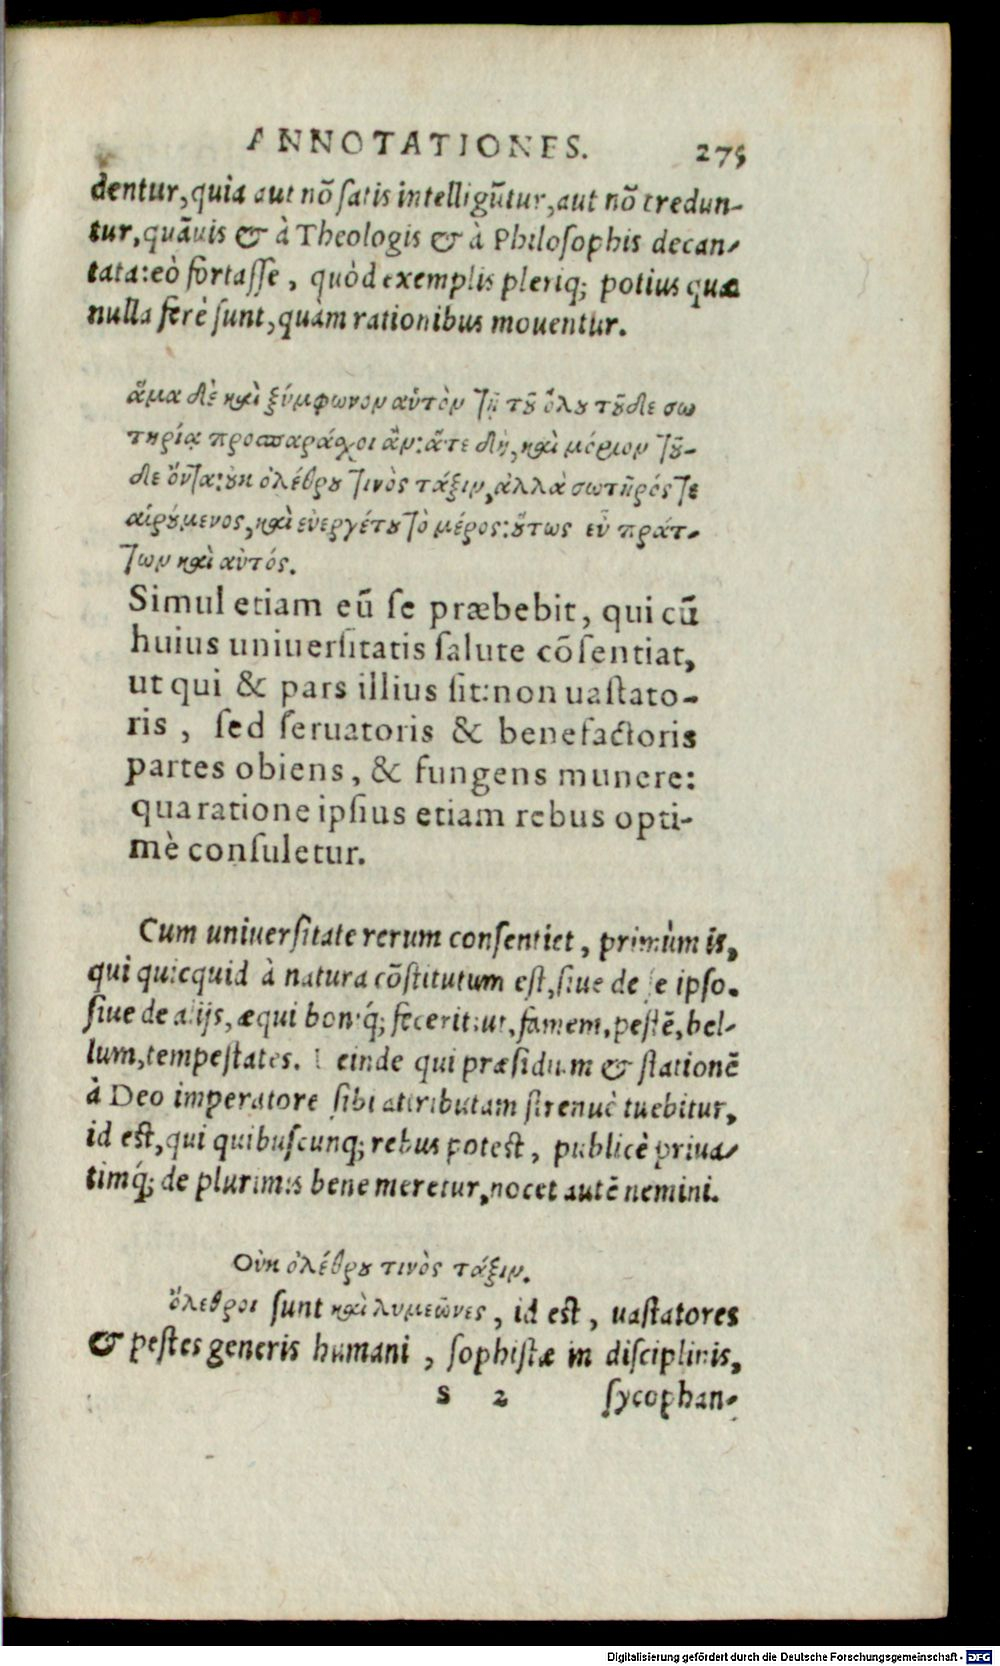 ANNOTATIONES. 275
dentur, quia aut nō satis intelligūtur, aut nō credun-
tur, quāuis & à Theologis & à Philosophis decan-
tata: eò fortasse, quòd exemplis pleriq; potius quæ
nulla ferè sunt, quàm rationibus mouentur.
ἅμα δὲ καὶ ξύμφωνον αὑτὸν τῇ τοῦ ὅλου τοῦδε σω
τηρίᾳ προσπαράσχοι ἂν: ἅτε δὴ, καὶ μόριον τοῦ-
δε ὄντα: οὐκ ὀλέθρου τινὸς τάξιν, ἀλλὰ σωτῆρός τε
αἱρούμενος, καὶ εὐεργέτου τὸ μέρος: οὕτως εὖ πράτ-
των καὶ αὐτός.
Simul etiam eū se præbebit, qui cū
huius uniuersitatis salute cōsentiat,
ut qui & pars illius sit: non uastato-
ris, sed seruatoris & benefactoris
partes obiens, & fungens munere:
qua ratione ipsius etiam rebus opti-
mè consuletur.
Cum uniuersitate rerum consentiet, primùm is,
qui quicquid à natura cōstitutum est, siue de se ipso.
siue de alijs, æqui boniq́; fecerit: ut, famem, pestē, bel-
lum, tempestates. Deinde qui præsidium & stationē
à Deo imperatore sibi attributam strenuè tuebitur,
id est, qui quibuscunq; rebus potest, publicè priua-
timq́; de plurimis bene meretur, nocet autē nemini.
Οὐκ ὀλέθρου τινὸς τάξιν.
ὄλεθροι sunt καὶ λυμεῶνες, id est, uastatores
& pestes generis humani, sophistæ in disciplinis,
s 2 sycophan-
Digitalisierung gefördert durch die Deutsche Forschungsgemeinschaft - DFG